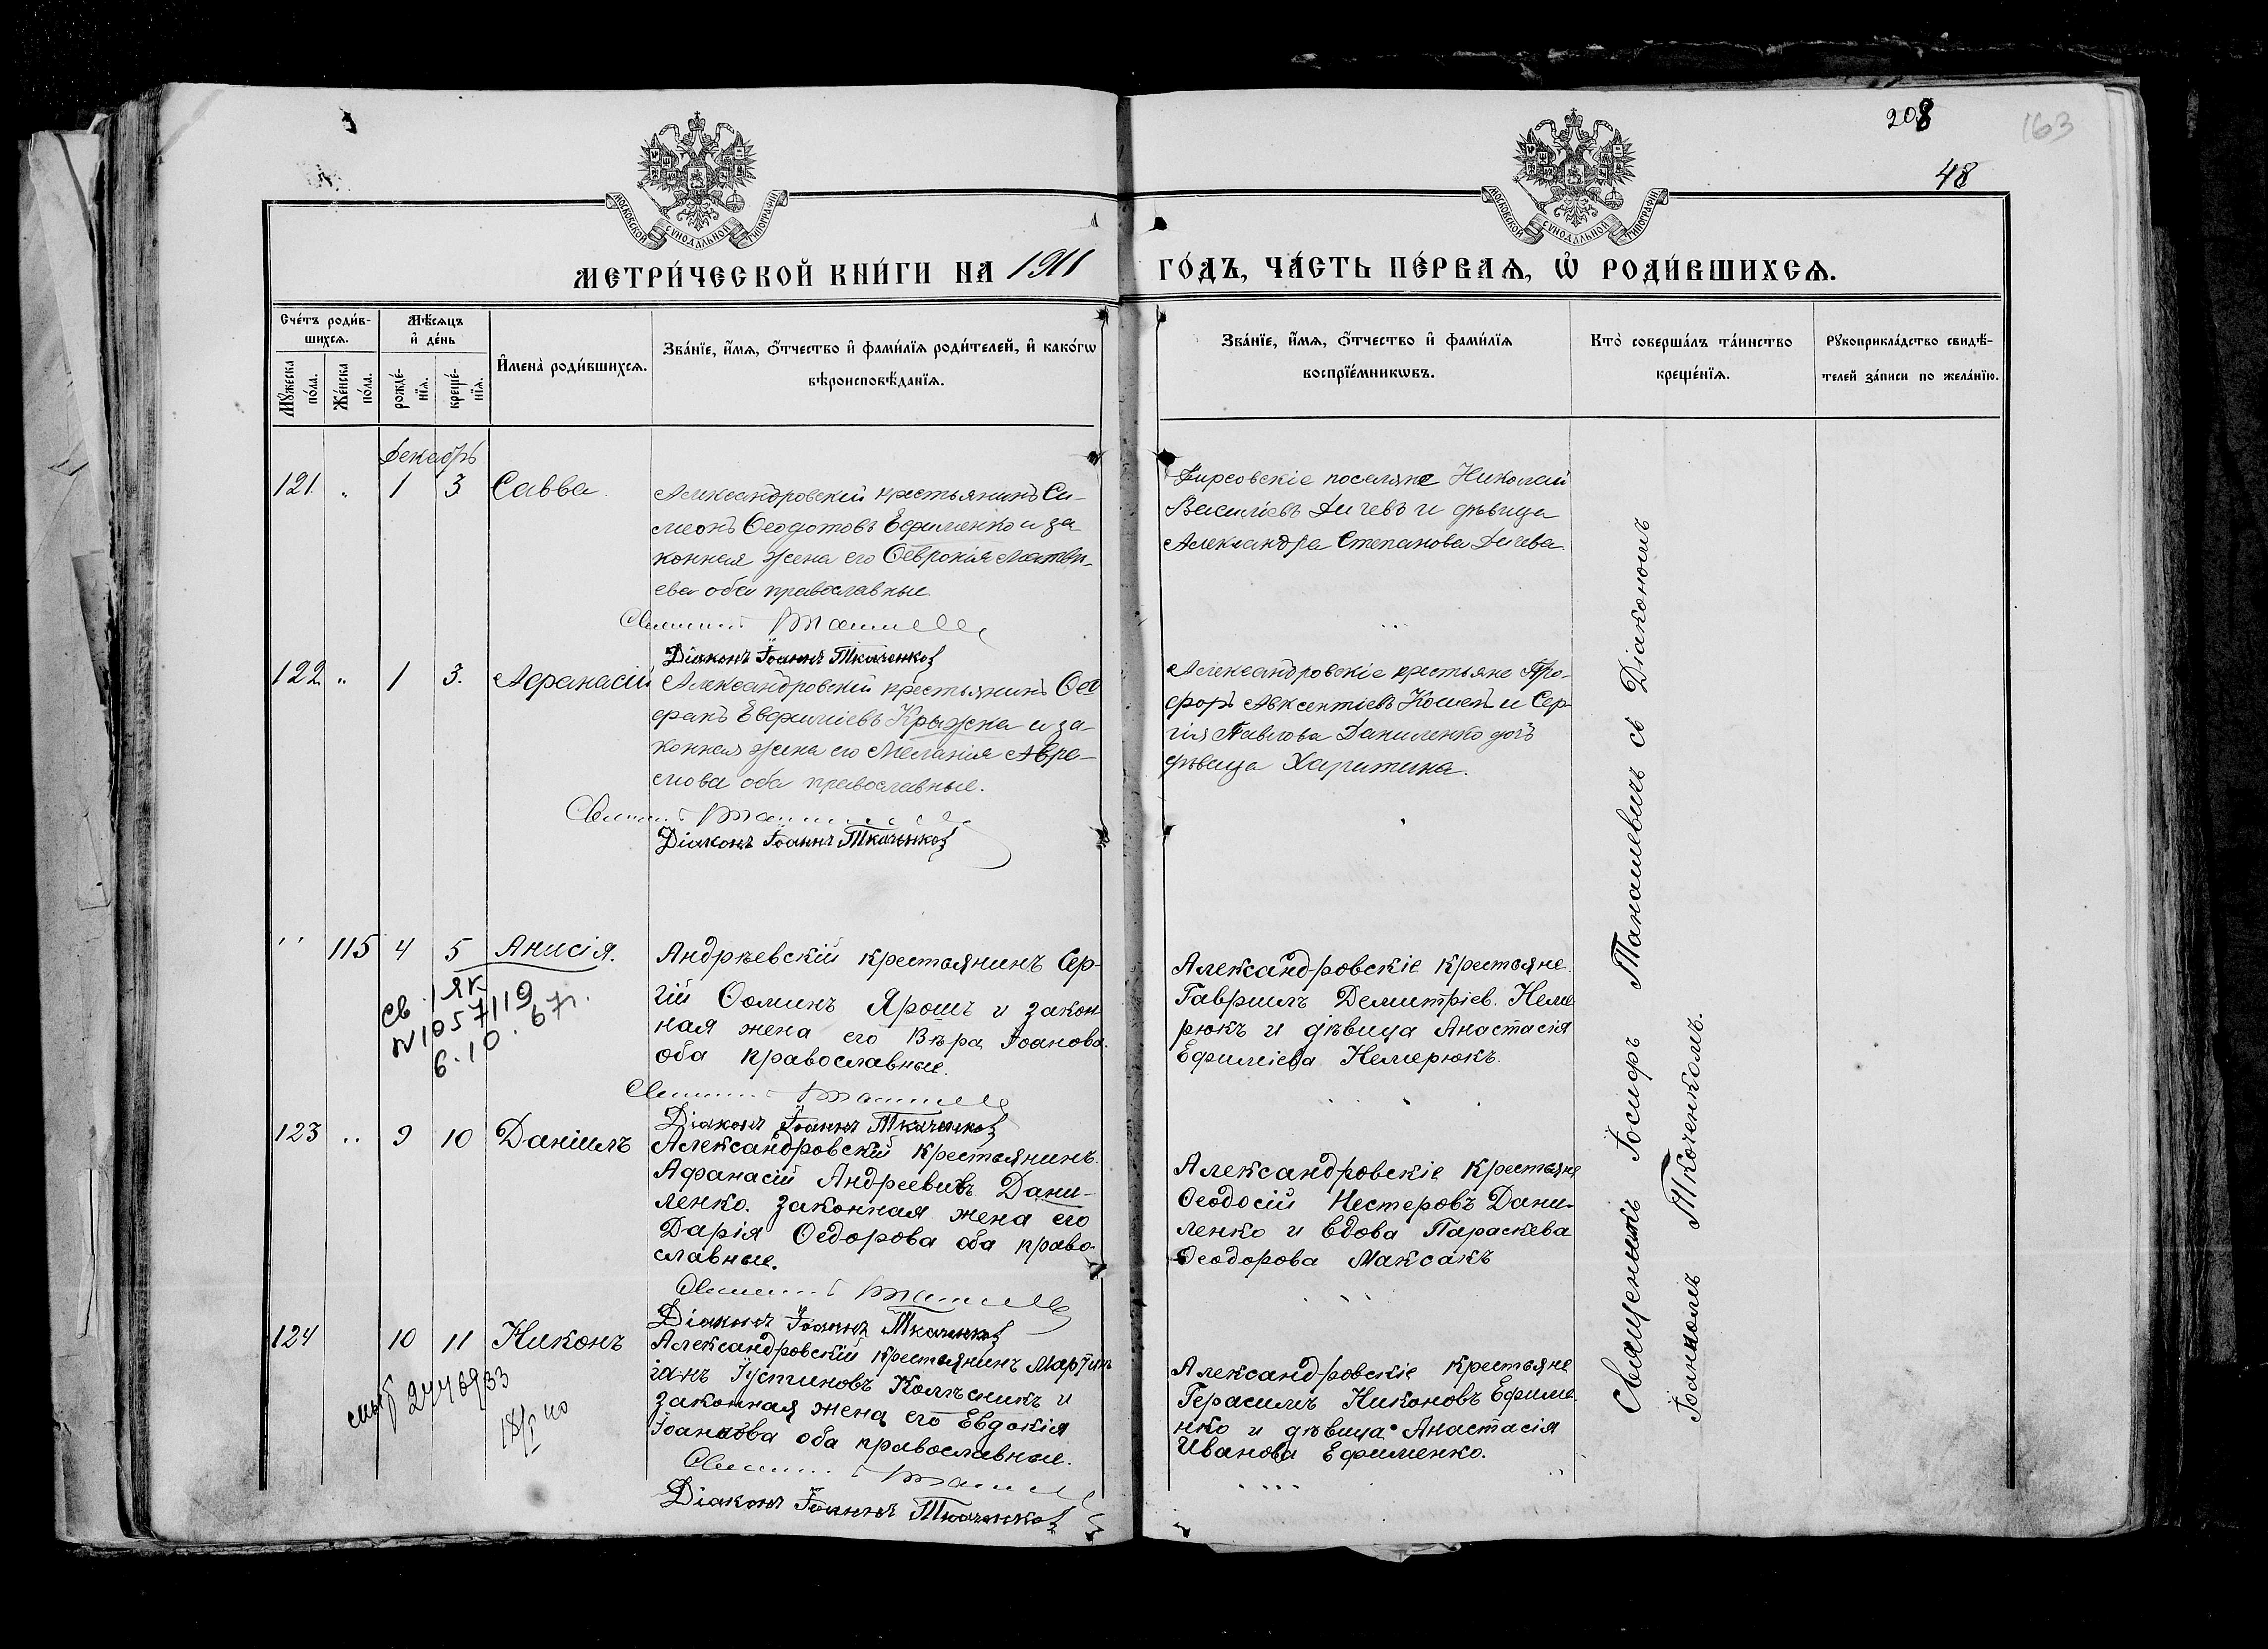 208
163
48
МОСКОВСКОЙ СѴНОДАЛЬНОЙ ТИПОГРАФІИ
МОСКОВСКОЙ СѴНОДАЛЬНОЙ ТИПОГРАФІИ
МЕТРИ́ЧЕСКОЙ КНИ́ГИ НА 1911
ГО́ДЪ, ЧА́СТЬ ПЕ́РВАѦ, Ѡ҆ РОДИ́ВШИХСѦ.
Сче́тъ роди́в-
шихсѧ.
Мꙋ́жеска
по́ла.
Же́нска
по́ла.
Мѣ́сѧцъ
и҆ де́нь
рожде́-
нїѧ.
креще́-
нїѧ.
И҆мена̀ роди́вшихсѧ.
Зва́нїе, и҆́мѧ, ѻ҆́тчество и҆ фами́лїѧ роди́телей, и҆ како́гѡ
вѣроисповѣ́данїѧ.
Зва́нїе, и҆́мѧ, ѻ҆́тчество и҆ фами́лїѧ
воспрїе́мникѡвъ.
Кто̀ соверша́лъ та́инство
креще́нїѧ.
Рꙋкоприкла́дство свидѣ́-
телей за́писи по жела́нїю.
Декабрь
121. " 1 3 Савва.
Александровскій крестьянинъ Си-
меонъ Ѳеодотовъ Ефименко и за
конная жена его Ѳеврокія Матѳи-
ева оба православные.
Діаконъ Іоаннъ Ткаченко
Кирсовскіе поселяне Николай
Василіевъ Дичевъ и дѣвица
Александра Степанова Дичева.
122 " 1 3. Афанасій
Александровскій крестьянинъ Ѳео
фанъ Евфиміевъ Крыжка и за-
конная жена его Меланія Авра-
мова оба православные.
Діаконъ Іоаннъ Ткаченко
Александровскіе крестьяне
Авксентіевъ и Сер
гія Павлова Даниленко дочь
дѣвица Харитина.
" 115 4 5 Анисія.
Св. I ЯК
N 1057119
6.10.67г.
Андрѣевскій крестьянинъ Сер-
гій Ѳоминъ Ярошъ и закон
ная жена его Вѣра Іоанова.
оба православные.
Діаконъ Іоаннъ Ткаченко
Александровскіе крестьяне
Гавріилъ Демитріев. Неме
рюкъ и дѣвица Анастасія
Ефиміева Немерюкъ.
123 " 9 10 Даніилъ
Александровскій крестьянинъ
Афанасій Андреевичъ Дани-
ленко. законная жена его
Дарія Ѳедорова оба право-
славные.
Діаконъ Іоаннъ Ткаченко
Александровскіе крестьяне
Ѳеодосій Нестеровъ Дани-
ленко и вдова Параскева
Ѳеодорова Максакъ
124 10 11 Никонъ
2440933
Александровскій крестьянинъ Мартин
іанъ Іустиновъ Колѣсникъ и
законная жена его Евдокія
Іоаннова оба православные.
Діаконъ Іоаннъ Ткаченко
Александровскіе крестьяне
Герасимъ Никоновъ Ефиме
нко и дѣвица Анастасія
Иванова Ефименко.
Священникъ Іосифъ Танашевичъ съ Діакономъ
Іоанномъ Ткаченкомъ.